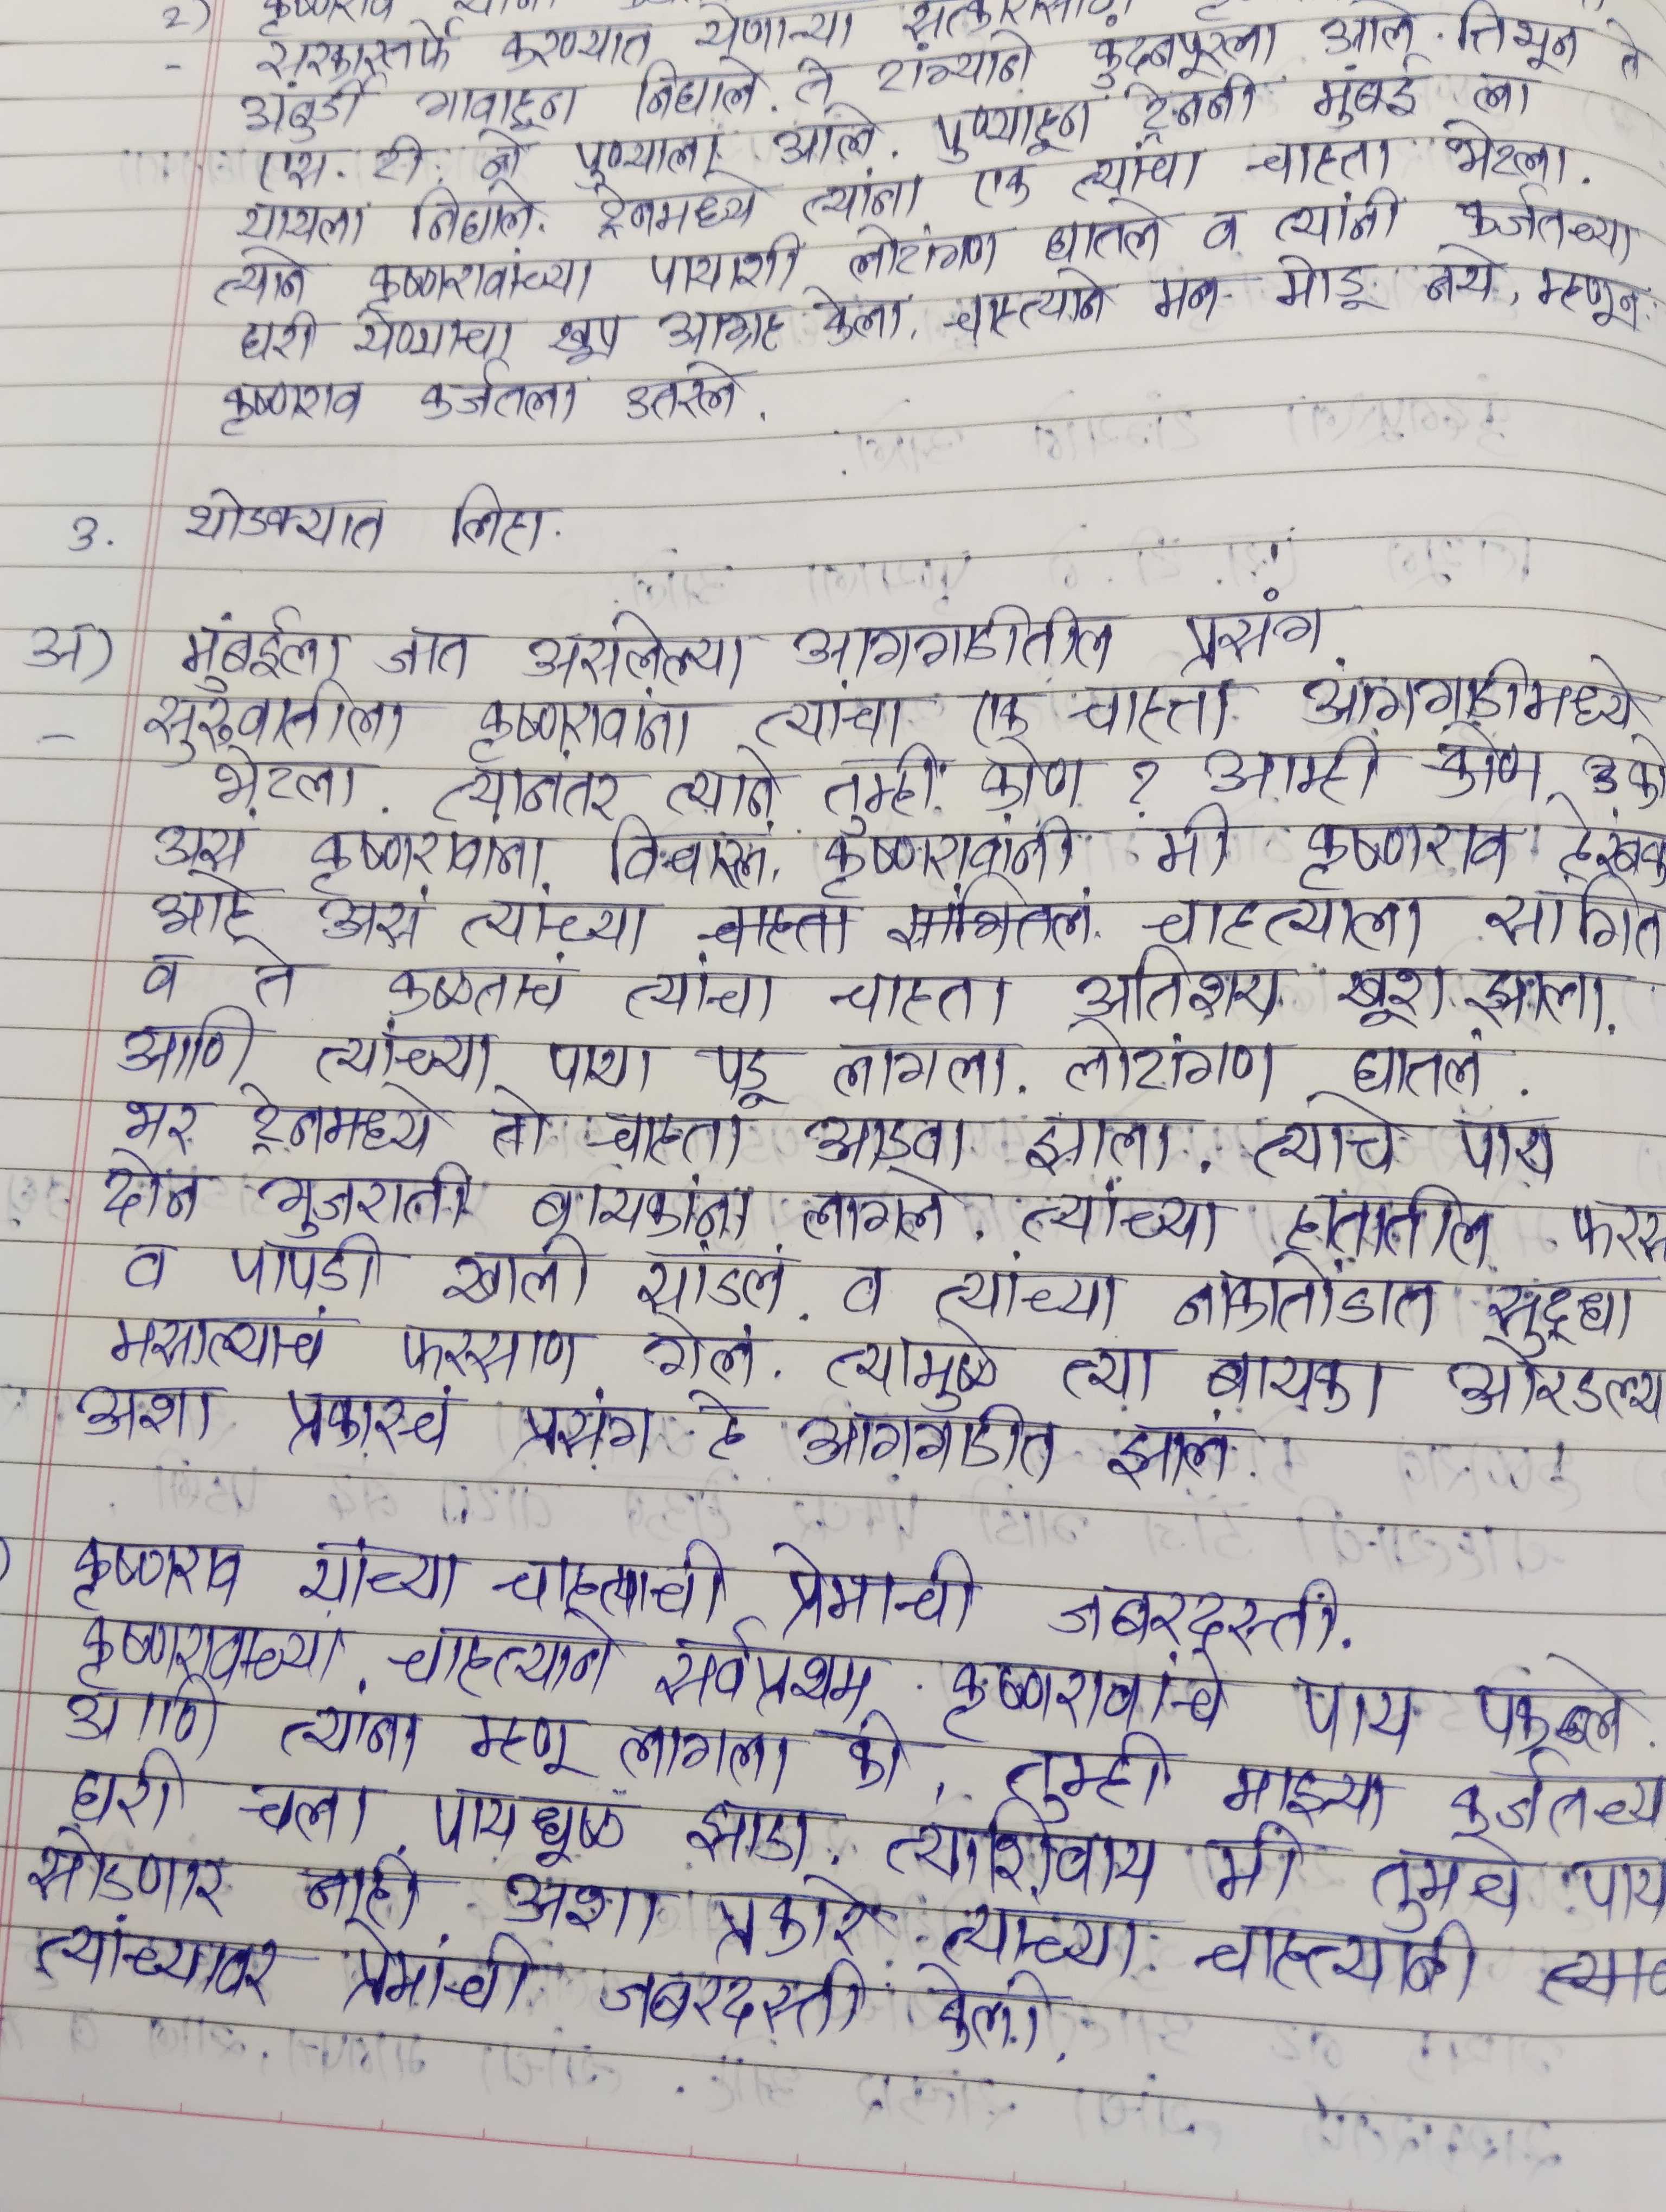 2) कृष्णराव
- सरकारतर्फे करण्यात येणाऱ्या सत्कारासाठी
अंबुर्डी गावाहून निघाले. ते टांग्याने कुंदनपूरला आले. तिथून ते
एस. टी. ने पुण्याला आले. पुण्याहून ट्रेननी मुंबई ला
यायला निघाले. ट्रेनमध्ये त्यांना एक त्यांचा चाहता भेटला.
त्याने कृष्णरावांच्या पायाशी लोटांगण घातले व त्यांनी कर्जतच्या
घरी येण्याचा खूप आग्रह केला. चाहत्याने मन मोडू नये, म्हणून
कृष्णराव कर्जतला उतरले.
3. थोडक्यात लिहा.
अ) मुंबईला जात असलेल्या आगगाडीतील प्रसंग
- सुरुवातीला कृष्णरावांना त्यांचा एक चाहता आगगाडीमध्ये
भेटला. त्यानंतर त्याने तुम्ही कोण ? आम्ही कोण
असं कृष्णरावांना विचारलं. कृष्णरावांनी मी कृष्णराव
आहे असं त्यांच्या चाहता सांगितलं. चाहत्याला
व ते कळताच त्यांचा चाहता अतिशय खूश झाला.
आणि त्यांच्या पाया पडू लागला. लोटांगण घातलं.
भर ट्रेनमध्ये तो चाहता आडवा झाला. त्याचे पाय
दोन गुजराती बायकांना लागले. त्यांच्या हातातील
व पापडी खाली सांडलं. व त्यांच्या नाकातोंडात सुद्धा
मसाल्याचं फरसाण गेलं. त्यामुळे त्या बायका ओरडल्या
अशा प्रकारचं प्रसंग हे आगगाडीत झालं.
कृष्णराव यांच्या चाहत्याची प्रेमाची जबरदस्ती.
कृष्णरावांच्या चाहत्याने सर्वप्रथम कृष्णरावांचे पाय पकडले.
आणि त्यांना म्हणू लागला की, तुम्ही माझ्या कर्जतच्या
घरी चला. पायधूळ झाडा. त्याशिवाय मी तुमचे पाय
सोडणार नाही. अशा प्रकारे त्यांच्या चाहत्यानी
त्यांच्यावर प्रेमाची जबरदस्ती केली.